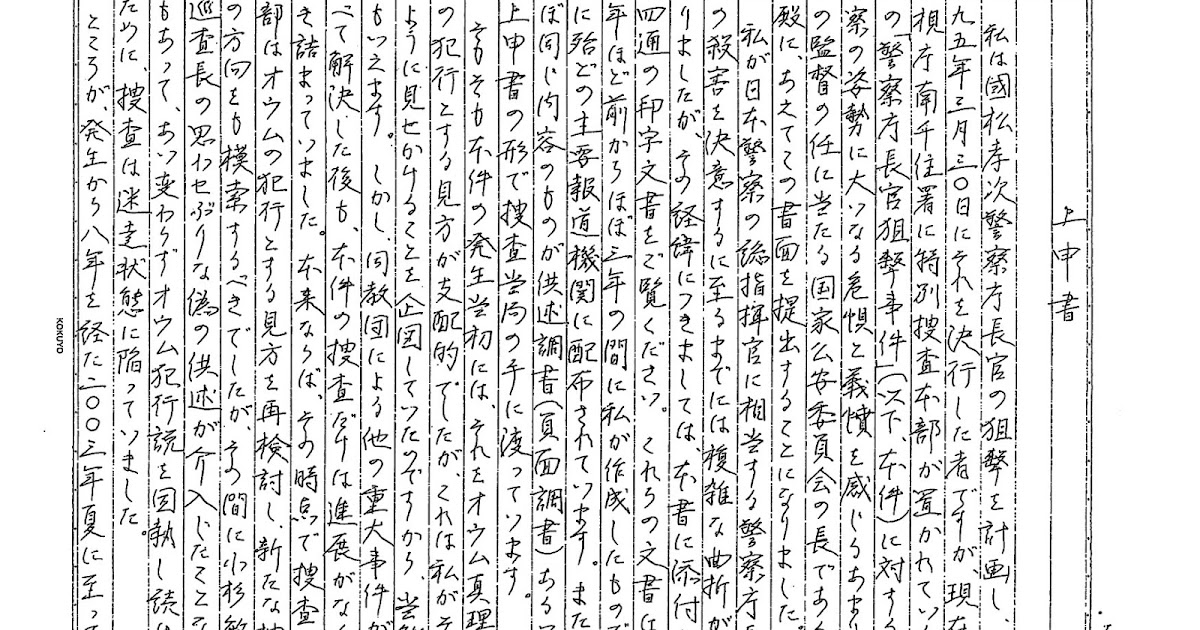 上申書
私は國松孝次警察庁長官の狙撃を計画し、
九五年三月三〇日にそれを決行した者ですが、現在
視庁南千住署に特別捜査本部が置かれてい
の「警察庁長官狙撃事件」(以下、本件)に対する
察の姿勢に大いなる危惧と義憤を感じるあまり
の監督の任に当たる国家公安委員会の長であ
殿に、あえてこの書面を提出することになりました。
私が日本警察の総指揮官に相当する警察庁長
の殺害を決意するに至るまでには複雑な曲折が
りましたが、その経緯につきましては、本書に添付
四通の印字文書をご覧ください。これらの文書は
年ほど前からほぼ三年の間に私が作成したもので
に殆どの主要報道機関に配布されています。また
ぼ同じ内容のものが供述調書(員面調書)あるい
上申書の形で捜査当局の手に渡っています。
そもそも本件の発生当初には、それをオウム真理
の犯行とする見方が支配的でしたが、これは私がそ
ように見せかけることを企図していたのですから、当然
もいえます。しかし、同教団による他の重大事件が
べて解決した後も、本件の捜査だけは進展がな
き詰まっていました。本来ならば、その時点で捜査
部はオウムの犯行とする見方を再検討し、新たな
の方向をも模索するべきでしたが、その間に小杉敏
巡査長の思わせぶりな偽の供述が介入したことな
もあって、あい変わらずオウム犯行説を固執し続け
ために、捜査は迷走状態に陥っていました。
ところが、発生から八年を経た二〇〇三年夏に至って
KOKUYO